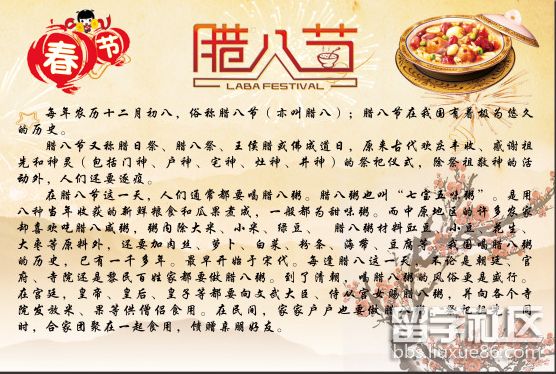 春节
腊八节
LABA FESTIVAL
每年农历十二月初八，俗称腊八节（亦叫腊八）；腊八节在我国有着极为悠久
的历史。
腊八节又称腊日祭、腊八祭、王侯腊或佛成道日，原来古代欢庆丰收、感谢祖
先和神灵（包括门神、户神、宅神、灶神、井神）的祭祀仪式，除祭祖敬神的活
动外，人们还要逐疫。
在腊八节这一天，人们通常都要喝腊八粥。腊八粥也叫“七宝五味粥”。是用
八种当年收获的新鲜粮食和瓜果煮成，一般都为甜味粥。而中原地区的许多农家
却喜欢吃腊八咸粥，粥内除大米、小米、绿豆、 腊八粥材料豇豆、小豆、花生、
大枣等原料外，还要加肉丝、萝卜、白菜、粉条、海带、豆腐等。我国喝腊八粥
的历史，已有一千多年。最早开始于宋代。每逢腊八这一天，不论是朝廷、官
府、寺院还是黎民百姓家都要做腊八粥。到了清朝，喝腊八粥的风俗更是盛行。
在宫廷，皇帝、皇后、皇子等都要向文武大臣、侍从宫女赐腊八粥，并向各个寺
院发放米、果等供僧侣食用。在民间，家家户户也要做腊八粥，祭祀祖先；同
时，合家团聚在一起食用，馈赠亲朋好友。
留学社区
bbs.liuxue86.com